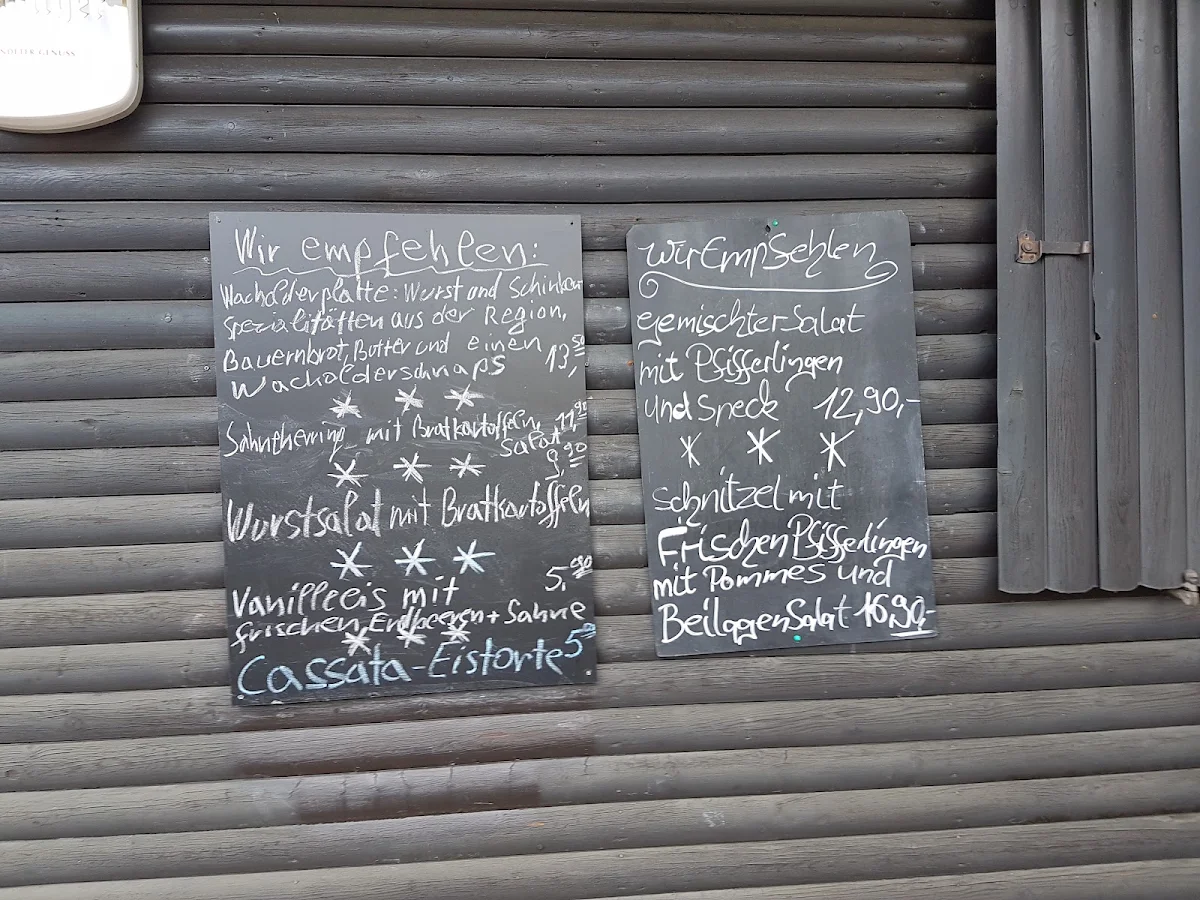 Wir empfehlen:
Wacholderplatte: Wurst und Schinken
Spezialitäten aus der Region,
Bauernbrot, Butter und einen 13,50
Wacholderschnaps
Sahnehering mit Bratkartoffeln, 11,90
Salat
9,90
Wurstsalat mit Bratkartoffeln
Vanilleeis mit 5,90
frischen Erdbeeren + Sahne
Cassata-Eistorte
wir Empfehlen
gemischter Salat
mit Pfifferlingen
und Speck 12,90,-
schnitzel mit
Frischen Pfifferlingen
mit Pommes und
Beilagen Salat 16,90,-